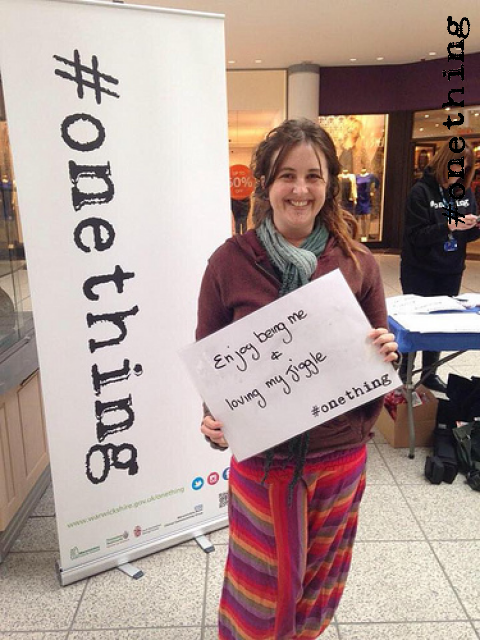 #onething
#onething
60%
Enjoy being me
&
loving my Jiggle
#onething
www.warwickshire.gov.uk/onething